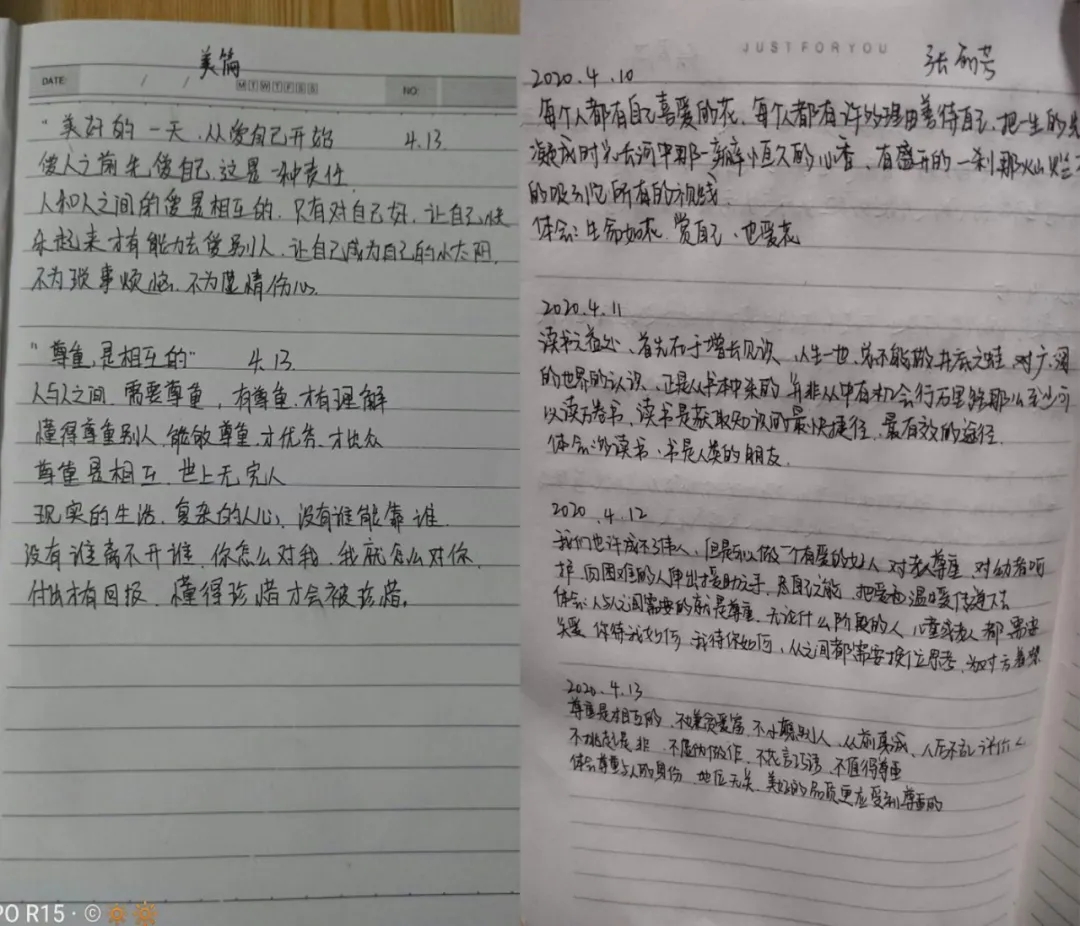 美简
DATE: / / M T W T F S S NO:
"美好的一天,从爱自己开始 4.13.
爱人之前先爱自己,这是一种责任
人和人之间的爱是相互的,只有对自己好,让自己快
乐起来才有能力去爱别人,让自己成为自己的小太阳,
不为琐事烦恼,不为虚情伤心.
"尊重,是相互的" 4.13.
人与人之间,需要尊重,有尊重,才有理解
懂得尊重别人,能够尊重,才优秀,才出众
尊重是相互,世上无完人
现实的生活,复杂的人心,没有谁能靠谁.
没有谁离不开谁,你怎么对我,我就怎么对你,
付出才有回报,懂得珍惜才会被珍惜。
PO R15 · ©
JUST FOR YOU
张丽芳
2020.4.10
每个人都有自己喜爱的花,每个人都有许多理由善待自己,把一生的
凝成时光长河中那一瓣恒久的心香,有盛开的一刹那灿烂
的吸引他所有的视线.
体会:生命如花,赏自己,也爱花
2020.4.11
读书之益处、首先在于增长见识,人生一世,总不能做井底之蛙,对广阔
的世界的认识,正是从书本中来的,并非人人都有机会行万里路那么至少可
以读万卷书,读书是获取知识的最快捷径,最有效的途径.
体会:多读书,书是人类的朋友.
2020.4.12
我们也许成不了伟人,但是可以做一个有爱的好人,对老人尊重,对幼者呵
护,向困难的人伸出援助之手,尽自己之能,把爱和温暖传递下去
体会:人与人之间需要的就是尊重,无论什么阶段的人,儿童或老人都需要
关爱,你待我如何,我待你如何,人之间都需要换位思考,为对方着想
2020.4.13
尊重是相互的,不嫌贫爱富,不小瞧别人,人前真我,人后不乱评价
不挑起是非,不虚伪做作,不花言巧语,不值得尊重
体会尊重与人的身份,地位无关,美好的品质更应受到尊重的